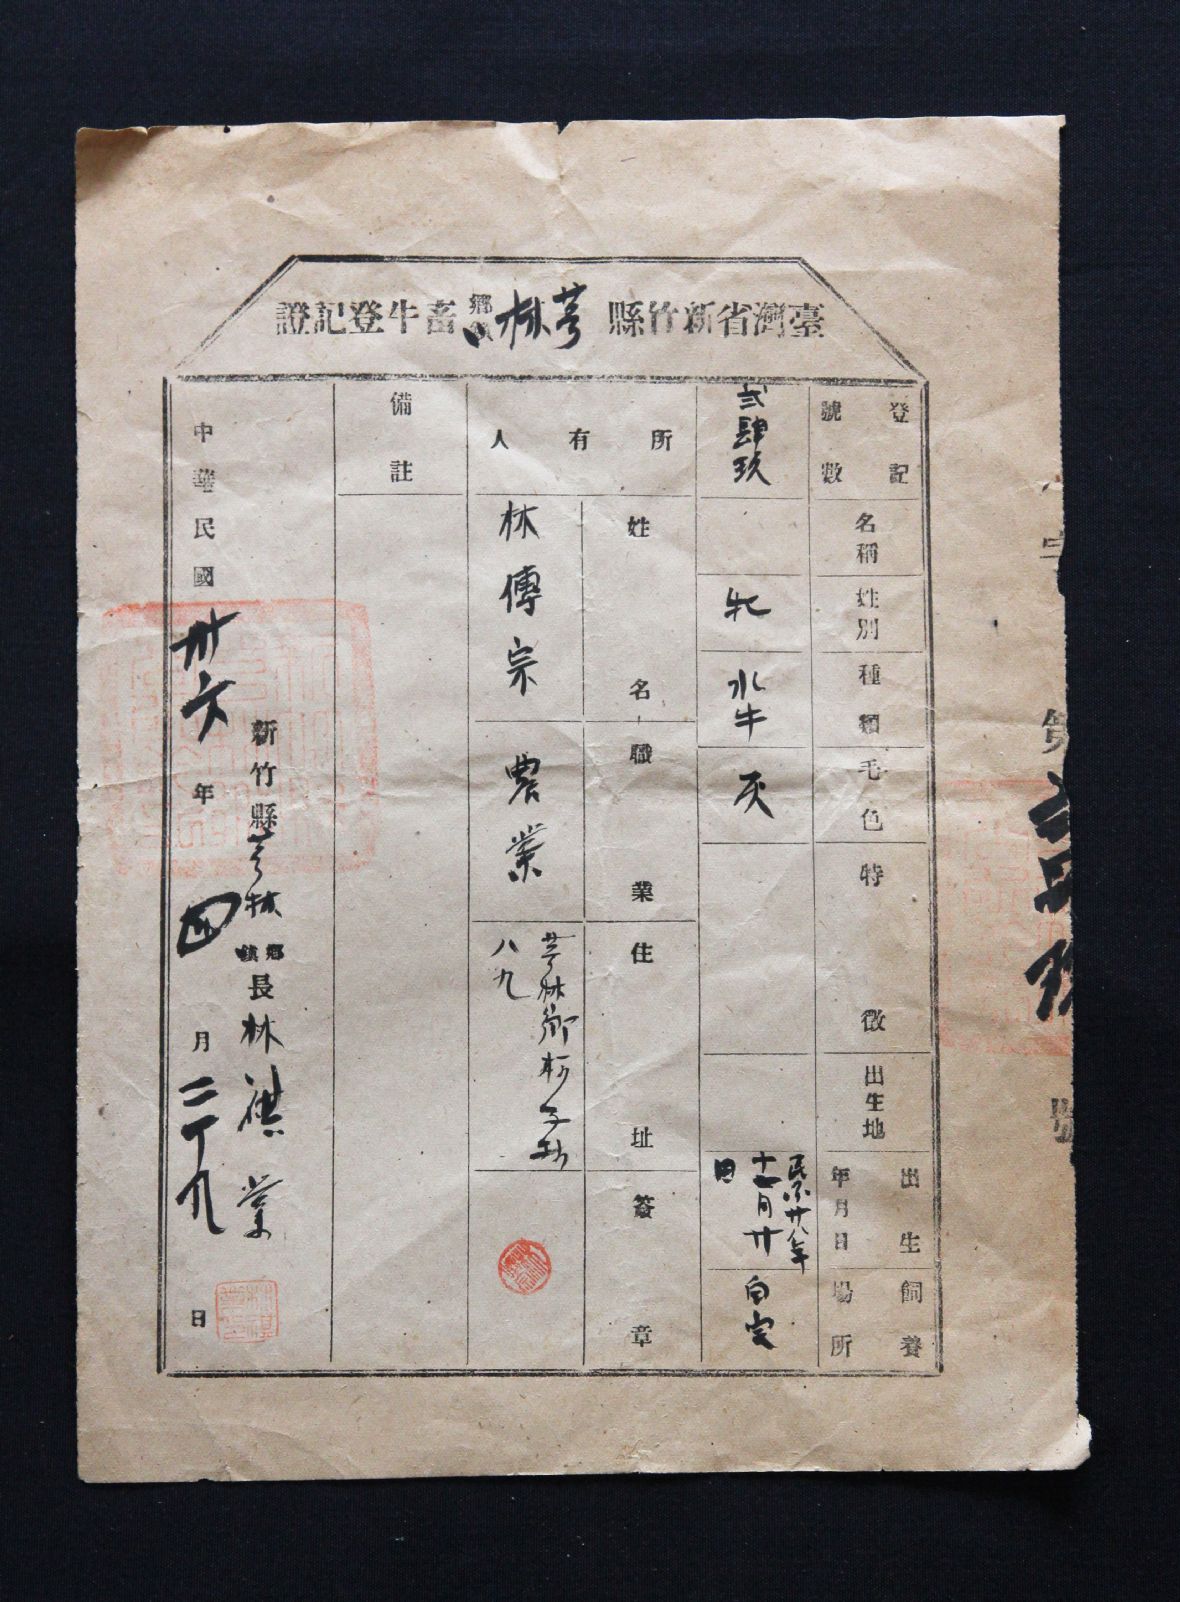 臺灣省新竹縣芎林鄉鎮畜牛登記證
登記號數
貳肆玖
名稱
姓別
牝
種類
水牛
毛色
灰
特徵
出生地
出生年月日
民國廿八年
十一月廿
日
飼養場所
自宅
所有人
姓名
林傳宗
職業
農業
住址
芎林鄉
八九
簽章
備註
新竹縣芎林鄉鎮長林祺業
中華民國卅六年四月二十九日
字
第
貳肆玖
號